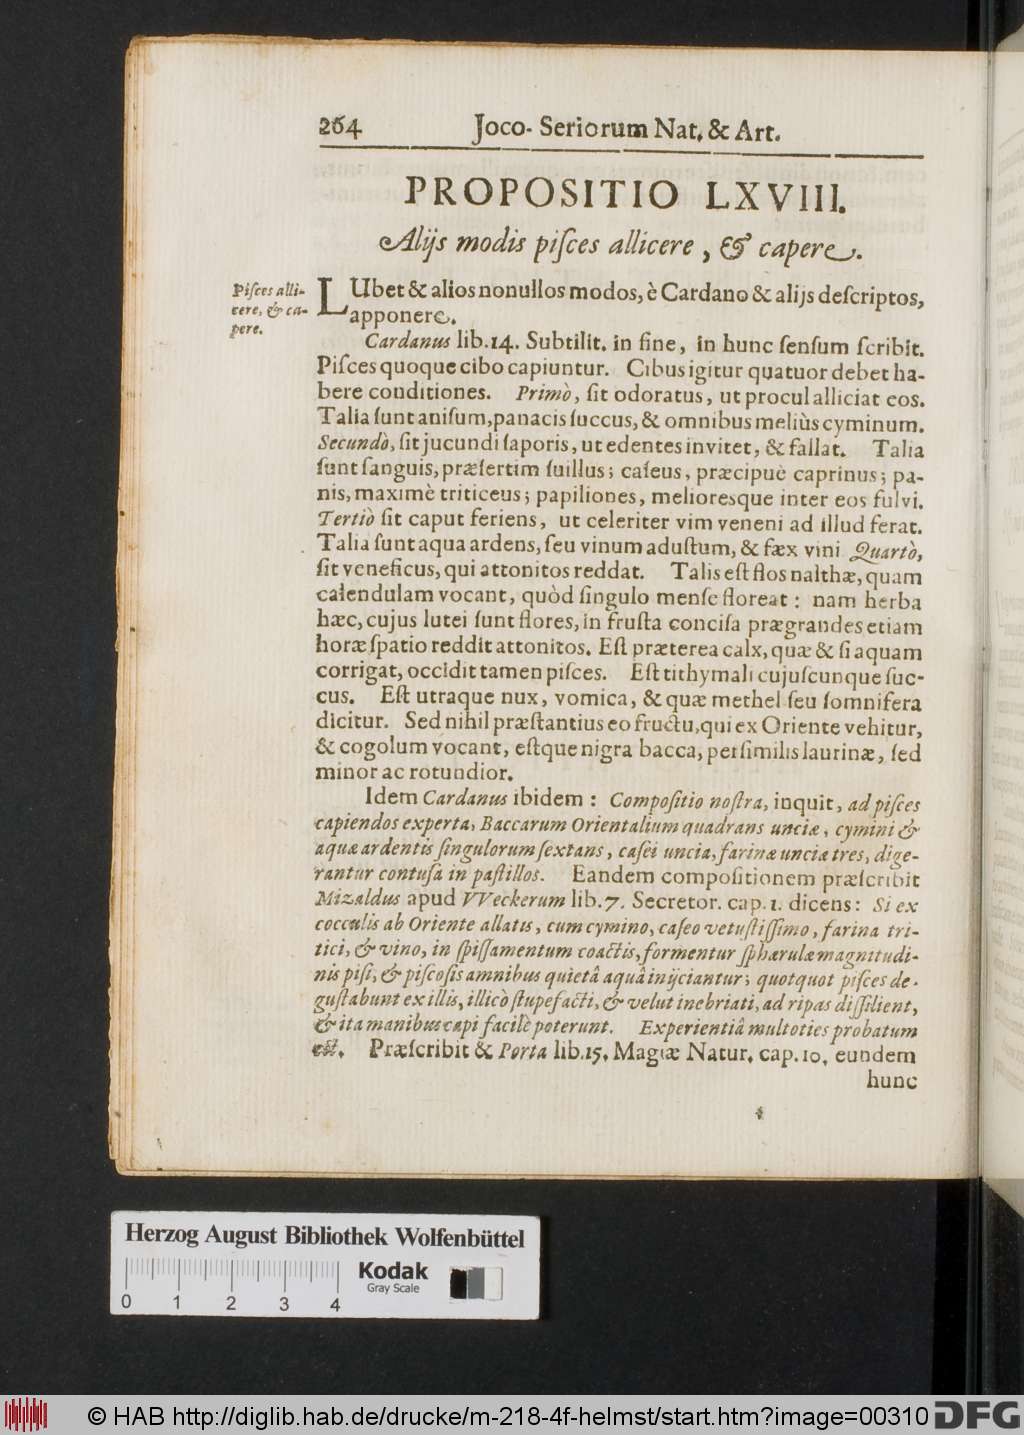 264 Joco-Seriorum Nat. & Art.
PROPOSITIO LXVIII.
Alijs modis piſces allicere, & capere.
Piſces alli-
cere, & ca-
pere.
LUbet & alios nonullos modos, è Cardano & alijs deſcriptos,
apponere.
Cardanus lib. 14. Subtilit. in fine, in hunc ſenſum ſcribit.
Piſces quoque cibo capiuntur. Cibus igitur quatuor debet ha-
bere conditiones. Primò, ſit odoratus, ut procul alliciat eos.
Talia ſunt aniſum, panacis ſuccus, & omnibus meliùs cyminum.
Secundò, ſit jucundi ſaporis, ut edentes invitet, & fallat. Talia
ſunt ſanguis, præſertim ſuillus; caſeus, præcipuè caprinus; pa-
nis, maximè triticeus; papiliones, melioresque inter eos fulvi.
Tertiò ſit caput feriens, ut celeriter vim veneni ad illud ferat.
Talia ſunt aqua ardens, ſeu vinum aduſtum, & fæx vini Quartò,
ſit veneficus, qui attonitos reddat. Talis eſt flos nalthæ, quam
calendulam vocant, quòd ſingulo menſe floreat: nam herba
hæc, cujus lutei ſunt flores, in fruſta conciſa prægrandes etiam
horæ ſpatio reddit attonitos. Eſt præterea calx, quæ & ſi aquam
corrigat, occidit tamen piſces. Eſt tithymali cujuſcunque ſuc-
cus. Eſt utraque nux, vomica, & quæ methel ſeu ſomnifera
dicitur. Sed nihil præſtantius eo fructu, qui ex Oriente vehitur,
& cogolum vocant, eſtque nigra bacca, perſimilis laurinæ, ſed
minor ac rotundior.
Idem Cardanus ibidem: Compoſitio noſtra, inquit, ad piſces
capiendos experta, Baccarum Orientalium quadrans unciæ, cymini &
aquæ ardentis ſingulorum ſextans, caſei uncia, farinæ unciæ tres, dige-
rantur contuſa in paſtillos. Eandem compoſitionem præſcribit
Mizaldus apud VVeckerum lib. 7. Secretor. cap. 1. dicens: Si ex
cocculis ab Oriente allatis, cum cymino, caſeo vetuſtiſſimo, farina tri-
tici, & vino, in ſpiſſamentum coactis, formentur ſphærulæ magnitudi-
nis piſi, & piſcoſis amnibus quietâ aquâ inijciantur; quotquot piſces de-
guſtabunt ex illis, illicò ſtupefacti, & velut inebriati, ad ripas diſſilient,
& ita manibus capi facilè poterunt. Experientiâ multoties probatum
eſt. Præſcribit & Porta lib. 15. Magiæ Natur. cap. 10. eundem
hunc
Herzog August Bibliothek Wolfenbüttel
Kodak
Gray Scale
0 1 2 3 4
© HAB http://diglib.hab.de/drucke/m-218-4f-helmst/start.htm?image=00310 DFG